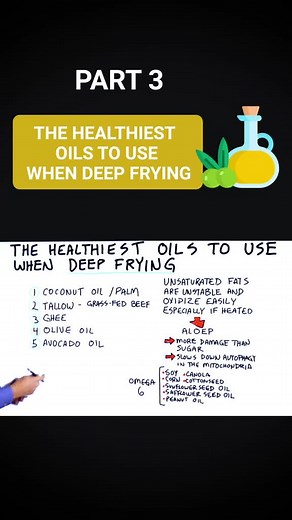 PART 3
THE HEALTHIEST
OILS TO USE
WHEN DEEP FRYING
THE HEALTHIEST OILS TO USE
WHEN DEEP FRYING
1 COCONUT OIL / PALM
2 TALLOW - GRASS-FED BEEF
3 GHEE
4 OLIVE OIL
5 AVOCADO OIL
UNSATURATED FATS
ARE UNSTABLE AND
OXIDIZE EASILY
ESPECIALLY IF HEATED
ALOEP
MORE DAMAGE THAN
SUGAR
SLOWS DOWN AUTOPHAGY
IN THE MITOCHONDRIA
OMEGA
6
SOY CANOLA
CORN COTTONSEED
SUNFLOWER SEED OIL
SAFFLOWER SEED OIL
PEANUT OIL